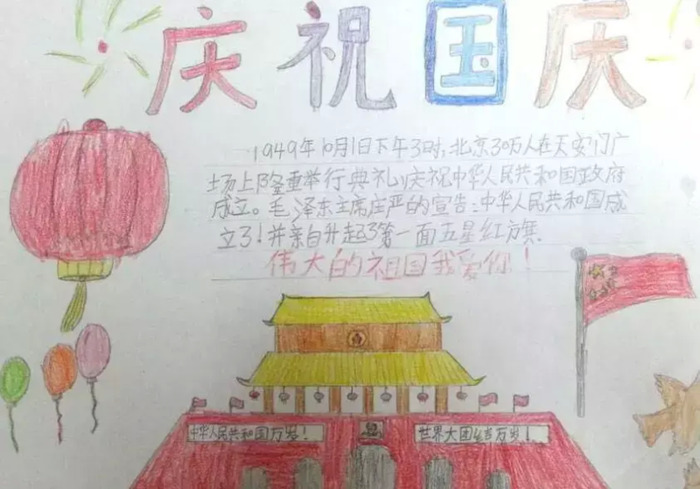 庆祝国庆
1949年10月1日下午3时,北京30万人在天安门广
场上隆重举行典礼,庆祝中华人民共和国政府
成立。毛泽东主席庄严的宣告:中华人民共和国成
立了!并亲自升起了第一面五星红旗
伟大的祖国我爱你!
中华人民共和国万岁! 世界大团结万岁!